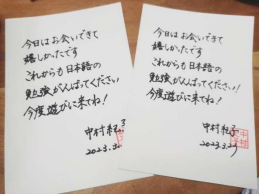 今日はお会いできて
嬉しかったです
これからも日本語の
勉強がんばってください
今度遊びに来てね!
中村
2023.3.
今日はお会いできて
嬉しかったです
これからも日本語の
勉強がんばってください!
今度遊びに来てね!
中村
2023.3.27